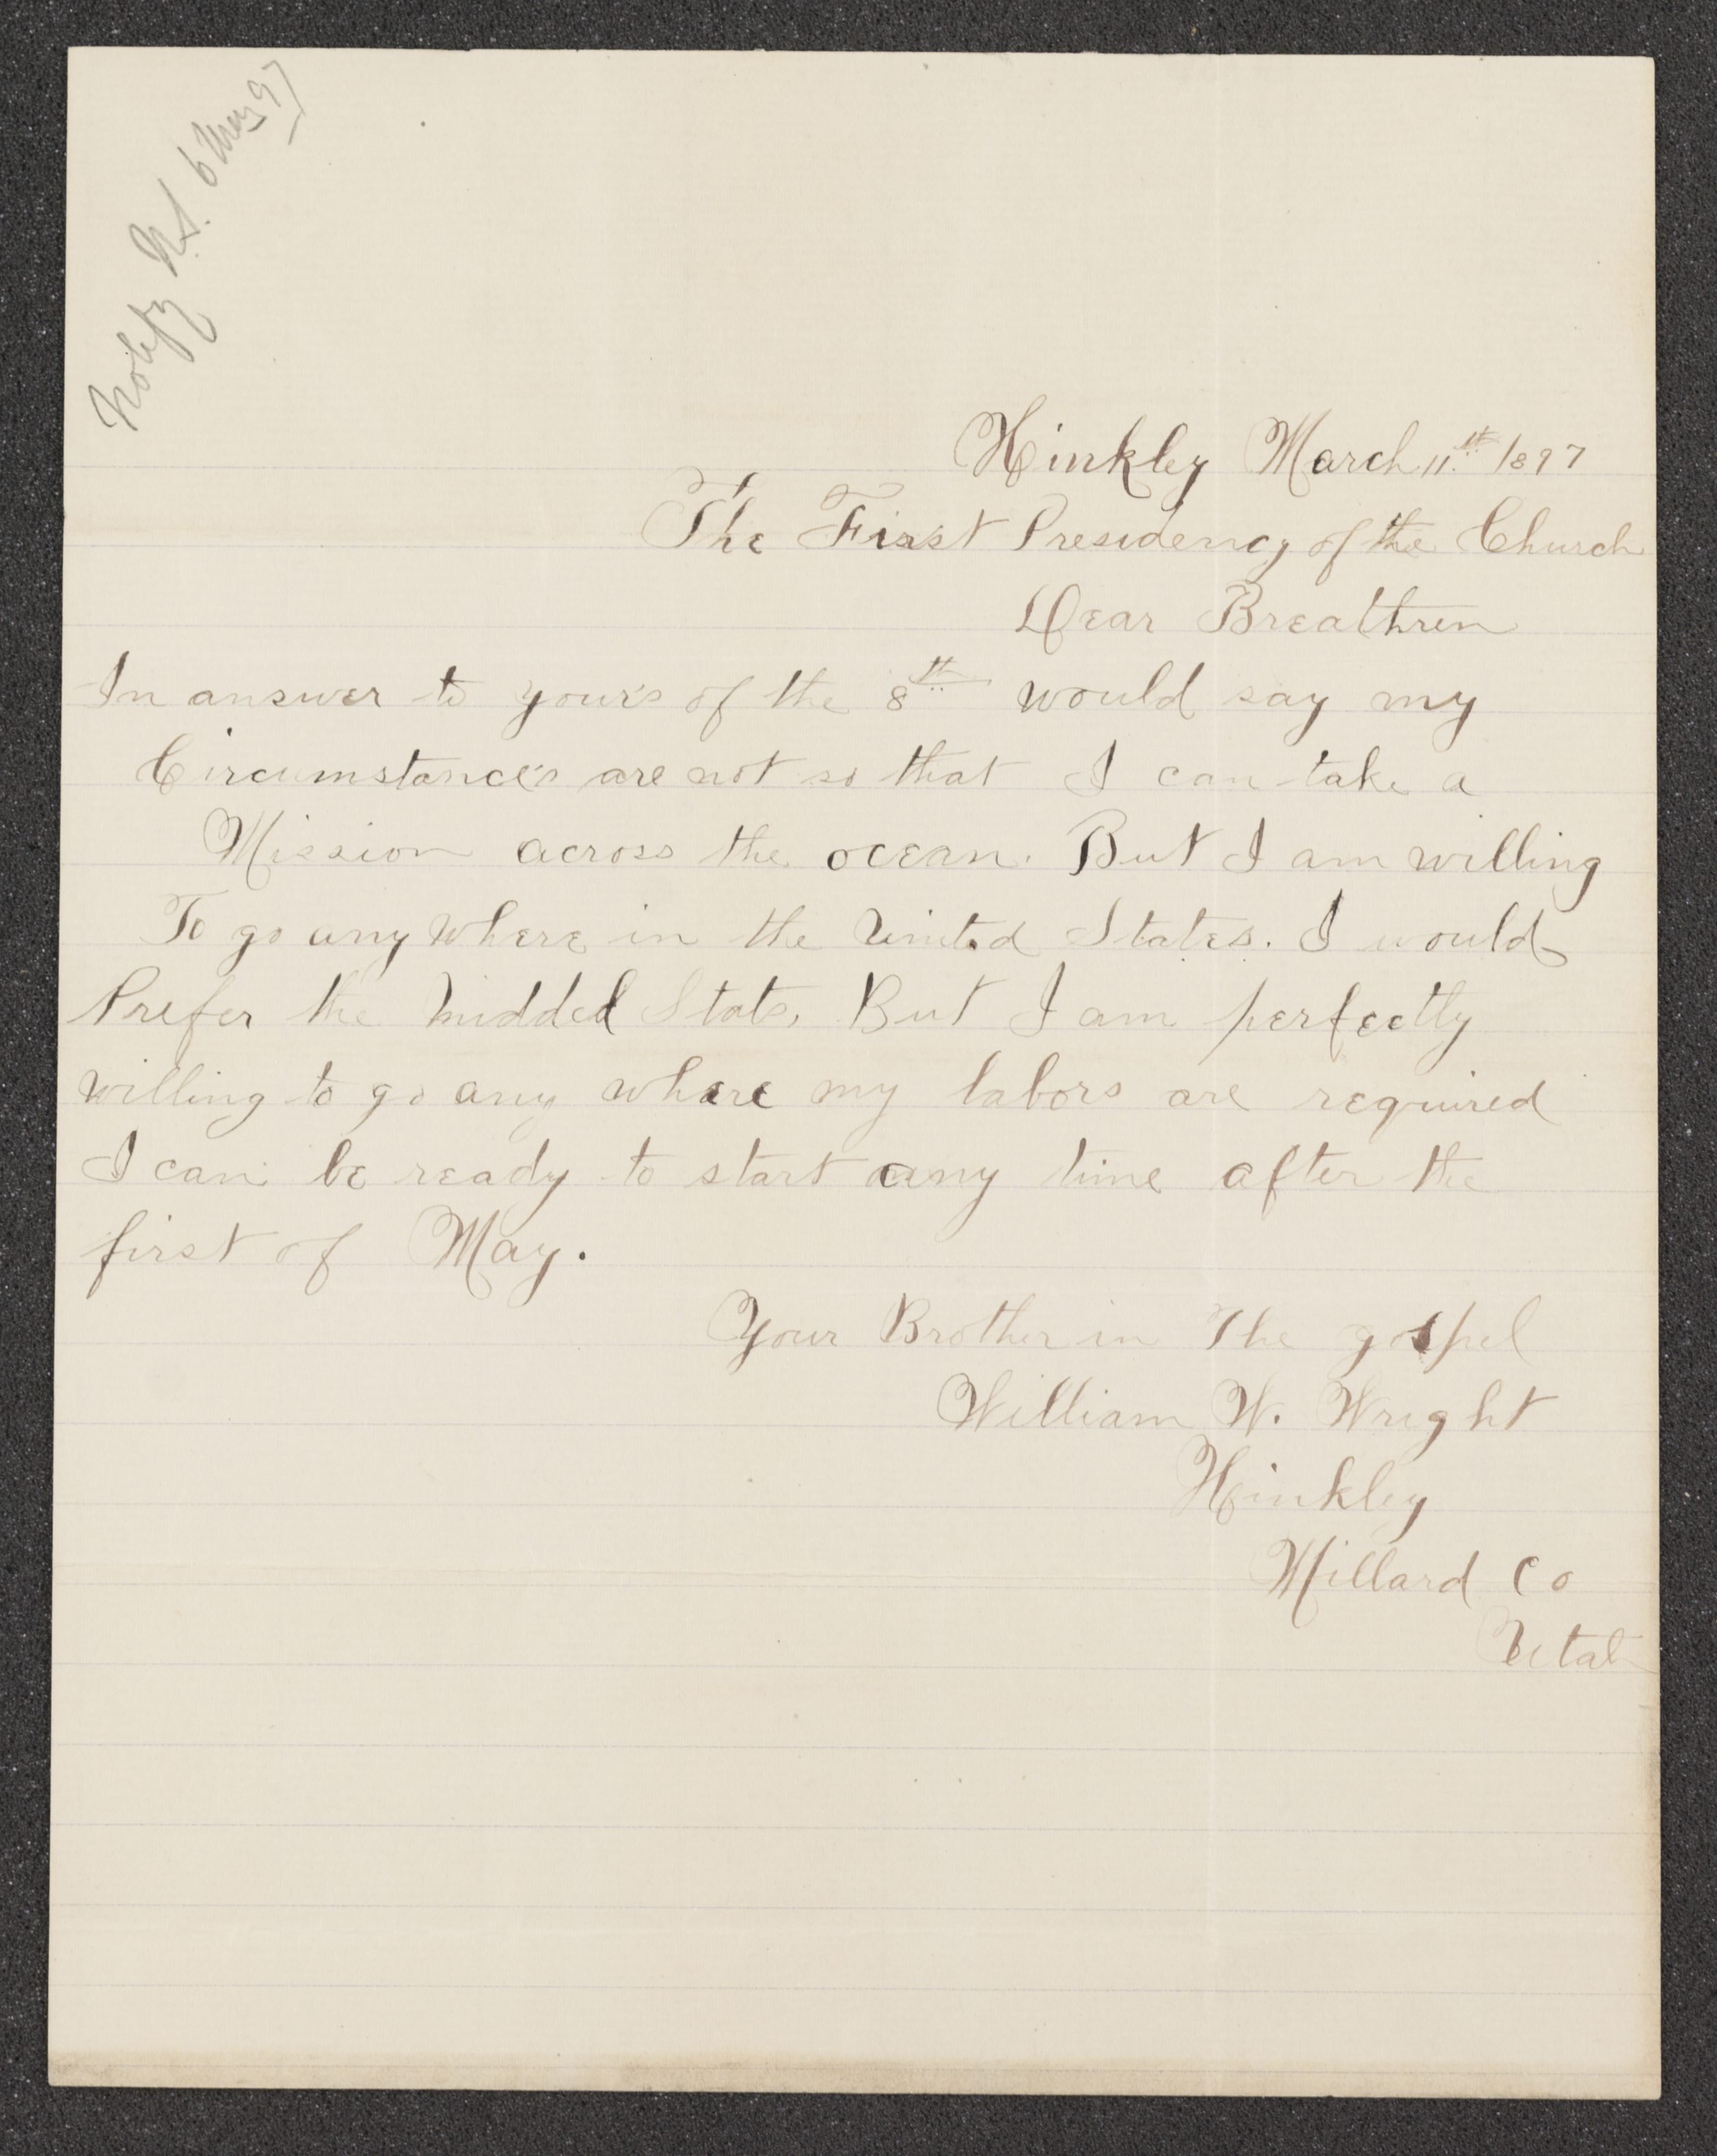 Notify N.S. 6 May 97
Hinkley March 11th 1897
The First Presidency of the Church
Dear Breathren
In answer to your's of the 8th would say my
Circumstance's are not so that I can take a
Mission across the ocean. But I am willing
To go any where in the United States. I would
Prefer the middel State. But I am perfectly
willing to go any where my labors are required
I can be ready to start any time after the
first of May.
Your Brother in The gospel
William W. Wright
Hinkley
Millard Co
Utah